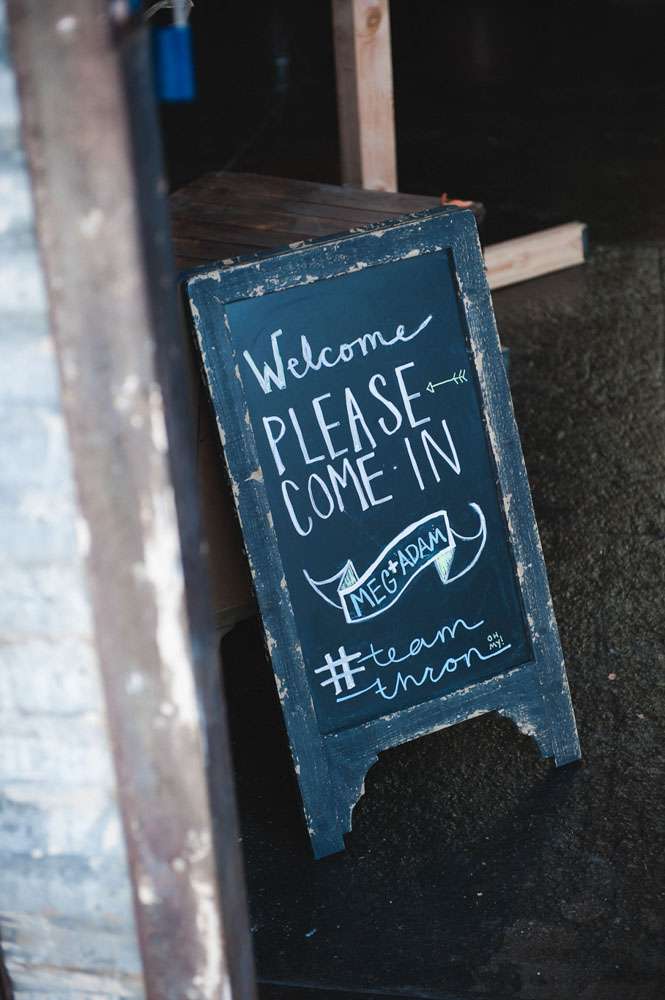 Welcome
PLEASE
COME · IN
MEG + ADAM
#team
thron
OH,
MY!